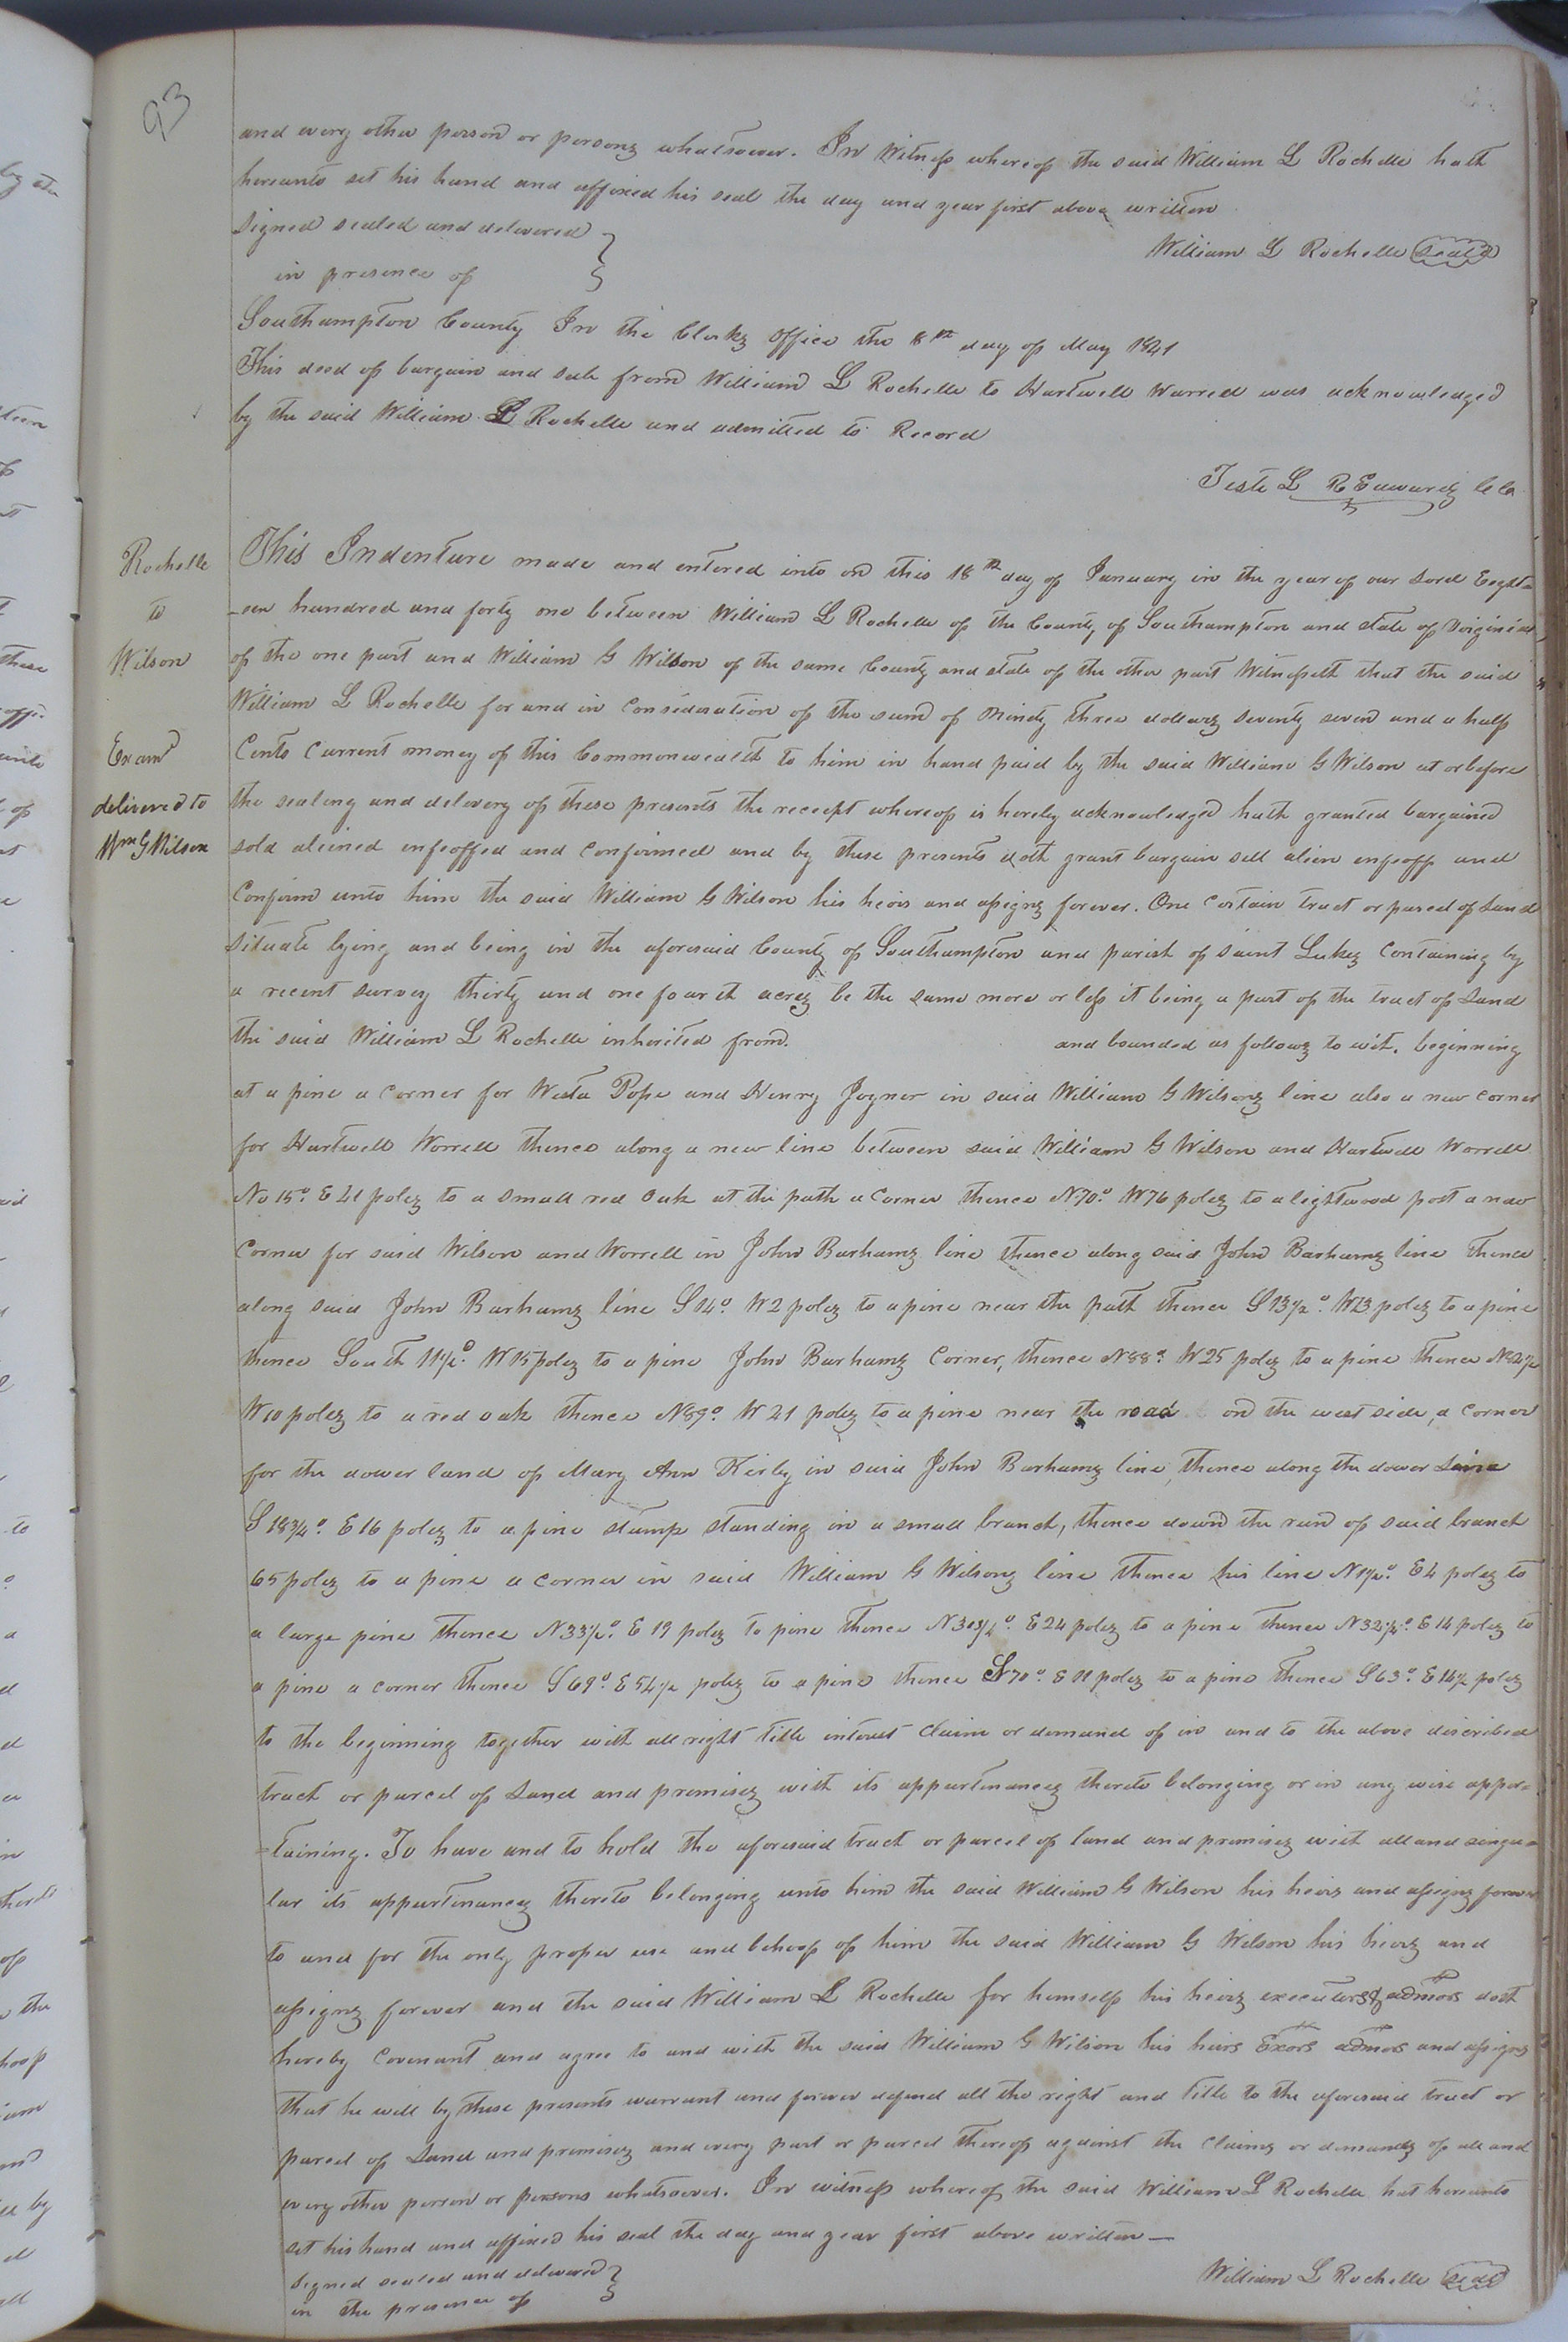 93
and every other person or persons whatsoever. In Witness whereof the said William L Rochelle hath
hereunto set his hand and affixed his seal the day and year first above written
Signed sealed and delivered
William L Rochelle seal
in presence of
Southampton County In the Clerks Office the 8th day of May 1841
This deed of bargain and sale from William L Rochelle to Hartwell Worrell was acknowledged
by the said William L Rochelle and admitted to Record
Teste L R Edwards
Rochelle
to
Wilson
Examd
delivered to
Wm G Wilson
This Indenture made and entered into on this 18th day of January in the year of our Lord Eight=
=een hundred and forty one between William L Rochelle of the County of Southampton and state of Virginia
of the one part and William G Wilson of the same County and state of the other part Witnesseth that the said
William L Rochelle for and in consideration of the sum of ninety three dollars seventy seven and a half
Cents Current money of this Commonwealth to him in hand paid by the said William G Wilson at or before
the sealing and delivery of these presents the receipt whereof is hereby acknowledged hath granted bargained
sold aliened enfeoffed and confirmed and by these presents doth grant bargain sell alien enfeoff and
Confirm unto him the said William G Wilson his heirs and assigns forever. One certain tract or parcel of Land
Situate lying and being in the aforesaid County of Southampton and parish of saint Lukes Containing by
a recent survey thirty and one fourth acres be the same more or less it being a part of the tract of Land
the said William L Rochelle inherited from. and bounded as follows to wit. beginning
at a pine a corner for Pope and Henry Joyner in said William G Wilsons line also a new corner
for Hartwell Worrell thence along a new line between said William G Wilson and Hartwell Worrell
No 15° E 41 poles to a small red oak at the path a corner thence N70° W76 poles to a lightwood post a new
Corner for said Wilson and Worrell in John Barhams line thence along said John Barhams line thence
along said John Barhams line S14° W2 poles to a pine near the path thence S13½° W23 poles to a pine
thence South 11½° W15 poles to a pine John Barhams Corner, thence N88° W25 poles to a pine thence N82½
W10 poles to a red oak thence N89° W21 poles to a pine near the road on the west side, a corner
for the dower land of Mary Ann Kirby in said John Barhams line, thence along the dower Line
S18¾° E16 poles to a pine stump standing in a small branch, thence down the run of said branch
65 poles to a pine a corner in said William G Wilsons line thence his line N1½° E4 poles to
a large pine thence N33½° E19 poles to pine thence N30¾° E24 poles to a pine thence N32¼° E14 poles to
a pine a corner thence S69° E54½ poles to a pine thence S70° E11 poles to a pine thence S63° E14½ poles
to the beginning together with all right title interest claim or demand of in and to the above discribed
tract or parcel of Land and premises with its appurtenances thereto belonging or in any wise apper=
=taining. To have and to hold the aforesaid tract or parcel of land and premises with all and singu=
lar its appurtenances thereto belonging unto him the said William G Wilson his heirs and assigns forever
to and for the only proper use and behoof of him the said William G Wilson his heirs and
assigns forever and the said William L Rochelle for himself his heirs executors & admors doth
hereby covenant and agree to and with the said William G Wilson his heirs Exors admors and assigns
that he will by these presents warrant and forever defend all the right and title to the aforesaid tract or
parcel of Land and premises and every part or parcel thereof against the claims or demands of all and
every other person or persons whatsoever. In witness whereof the said William L Rochelle hat hereunto
set his hand and affixed his seal the day and year first above written
Signed sealed and delivered
William L Rochelle seal
in the presence of